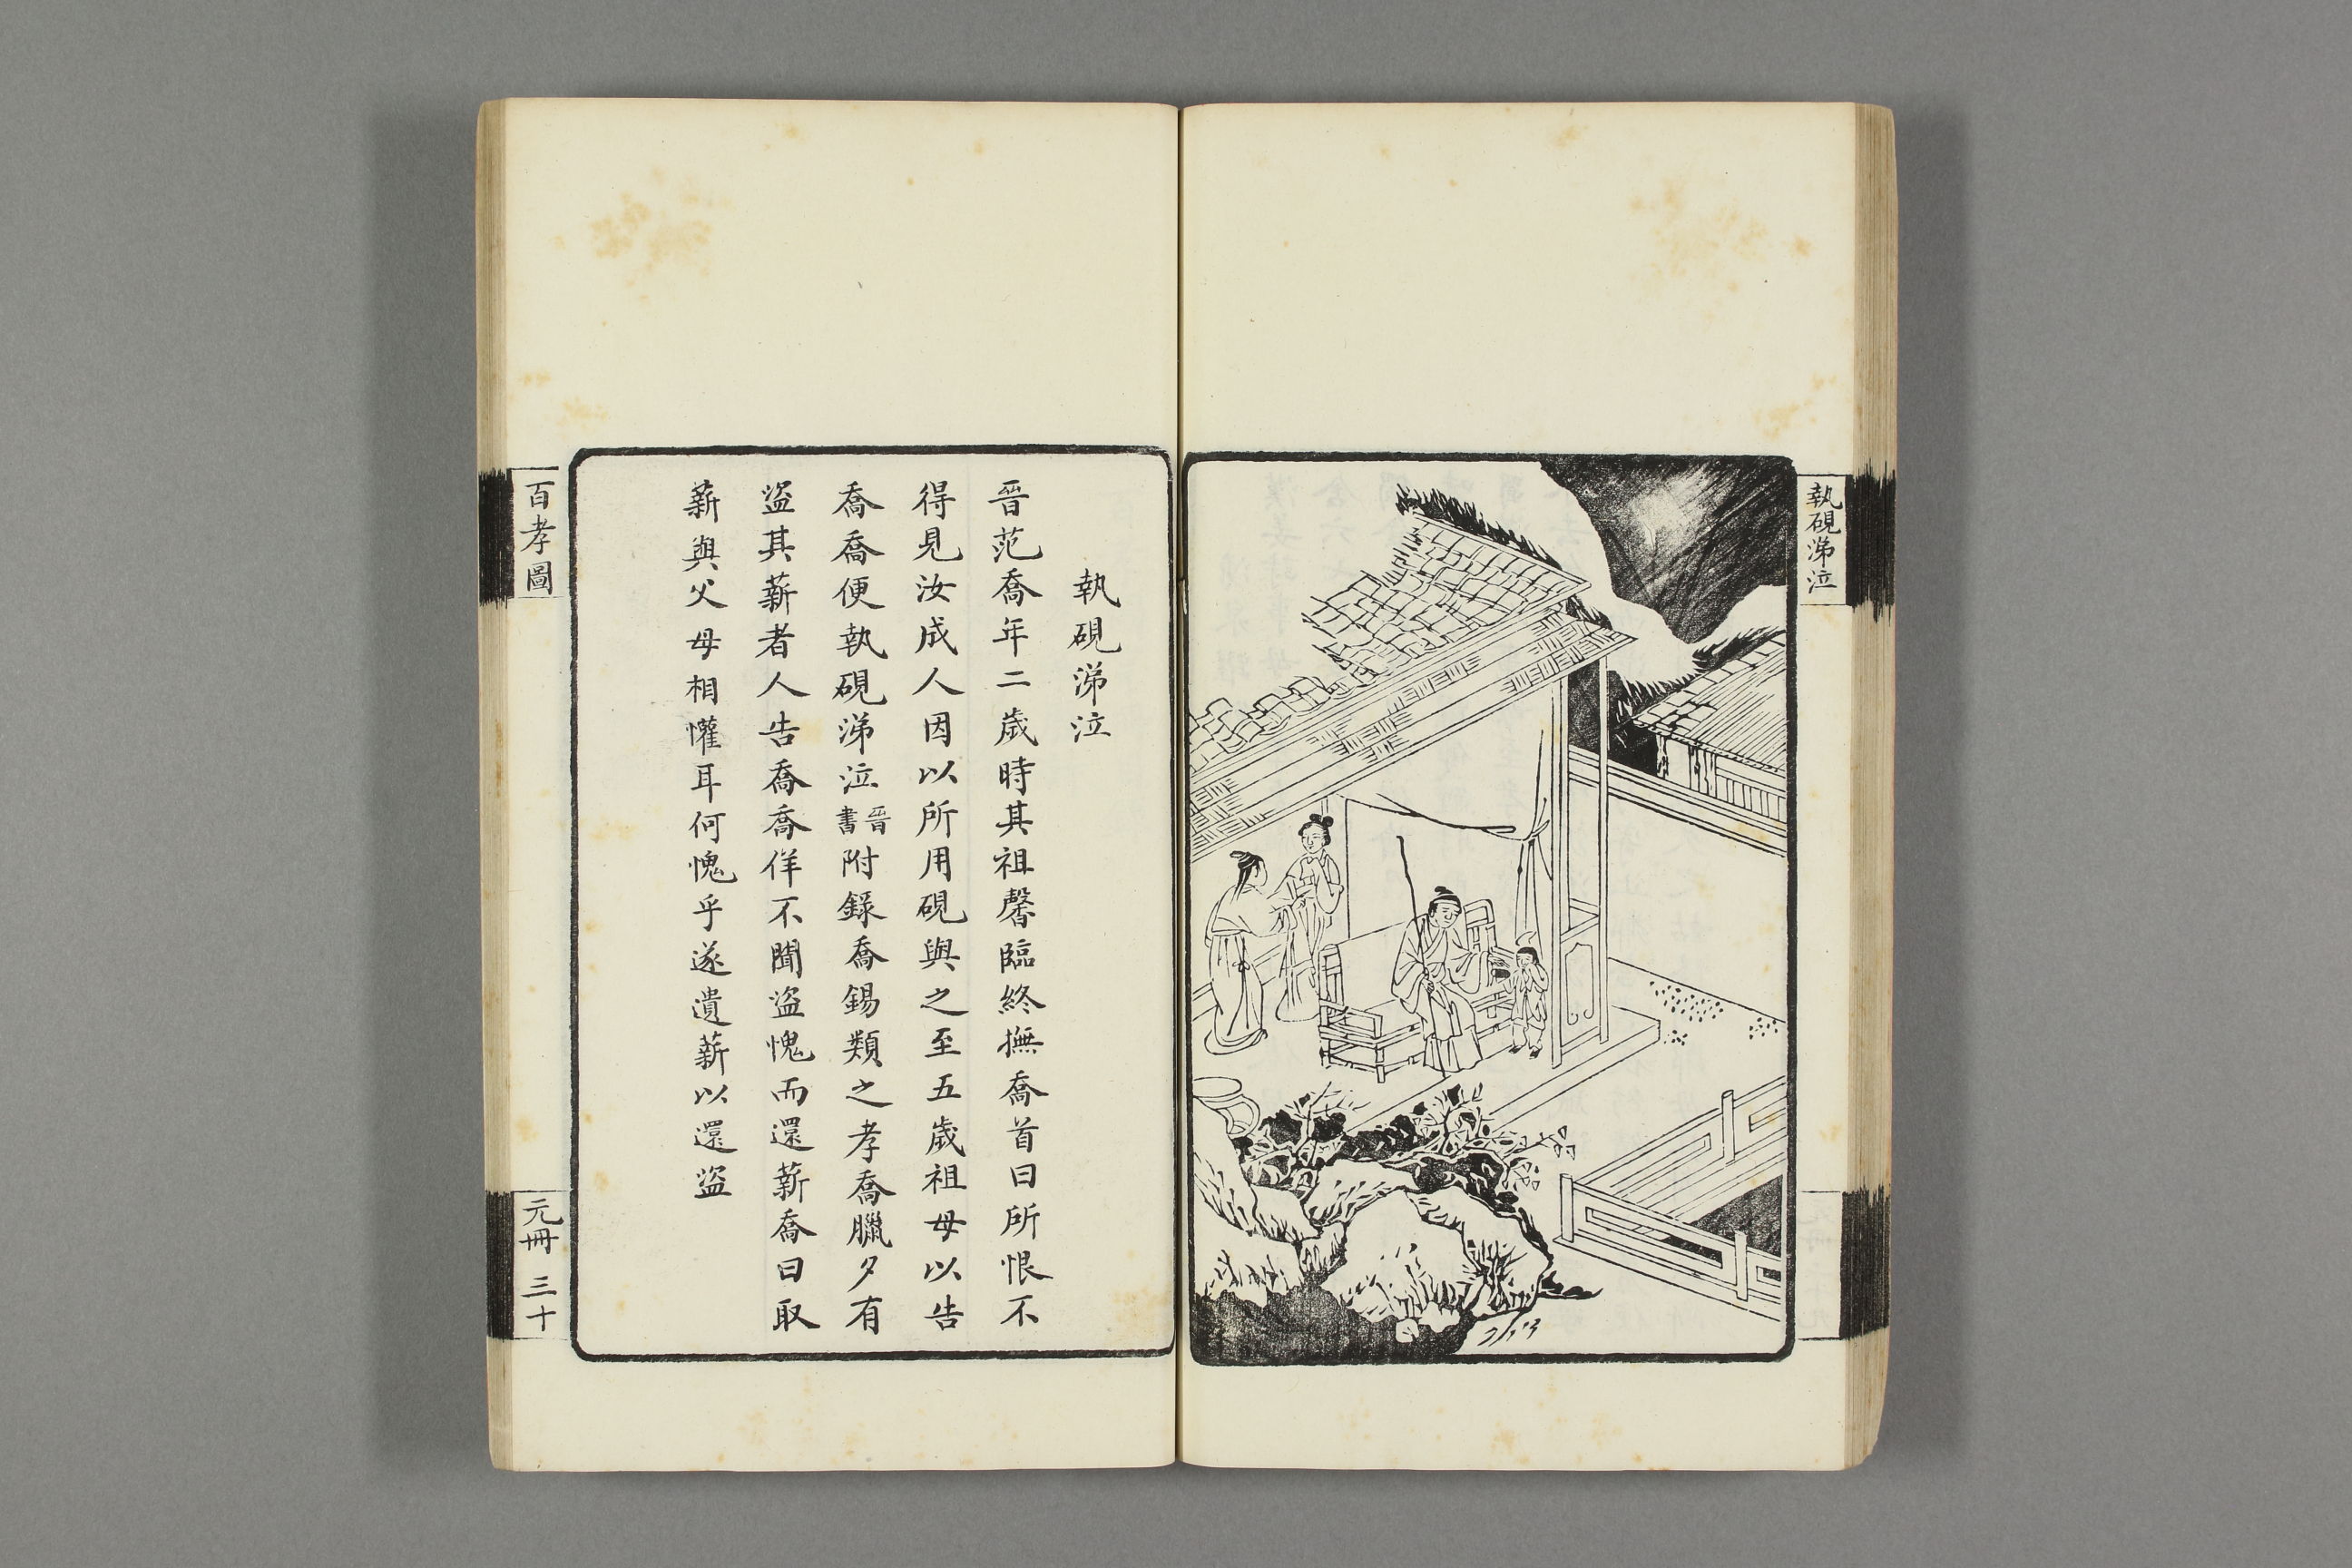 執硯涕泣
執硯涕泣
晉范喬年二歲時其祖馨臨終撫喬首曰所恨不
得見汝成人因以所用硯與之至五歲祖母以告
喬喬便執硯涕泣晉書附錄喬錫類之孝喬臘夕有
盜其薪者人告喬喬佯不聞盜愧而還薪喬曰取
薪與父母相懽耳何愧乎遂遺薪以還盜
百孝圖
元冊 三十